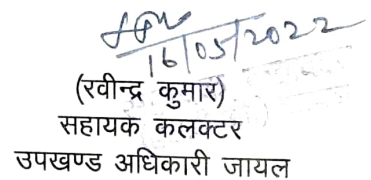 16/05/2022
(रवीन्द्र कुमार)
सहायक कलक्टर
उपखण्ड अधिकारी जायल